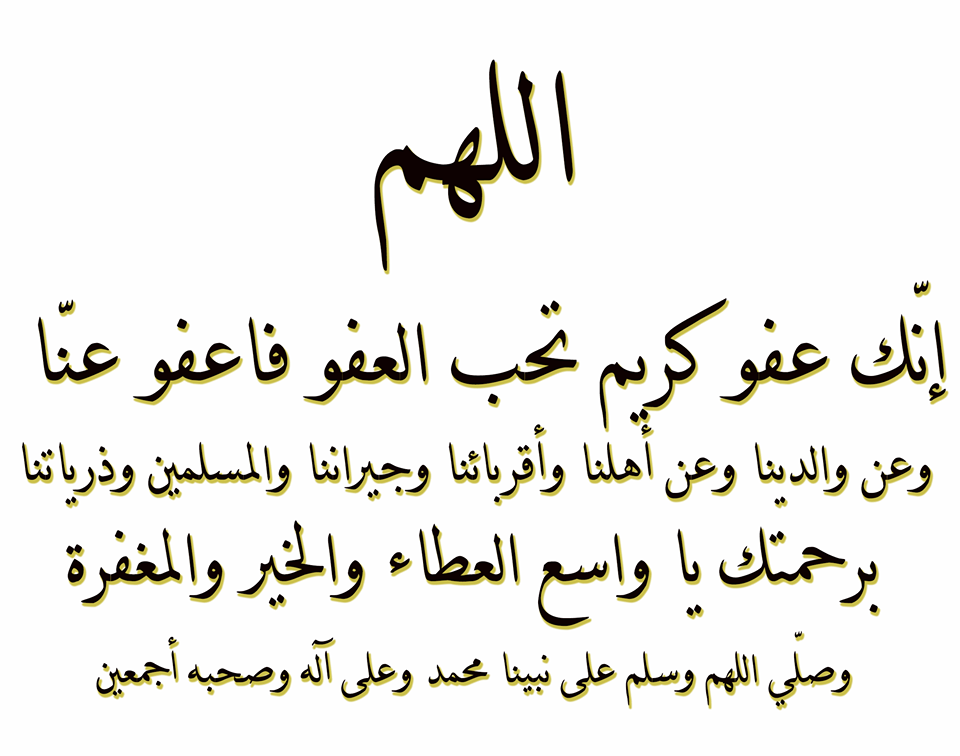 اللهم
إنّك عفو كريم تحب العفو فاعفو عنّا
وعن والدينا وعن أهلنا وأقربائنا وجيراننا والمسلمين وذرياتنا
برحمتك يا واسع العطاء والخير والمغفرة
وصلّي اللهم وسلم على نبينا محمد وعلى آله وصحبه أجمعين